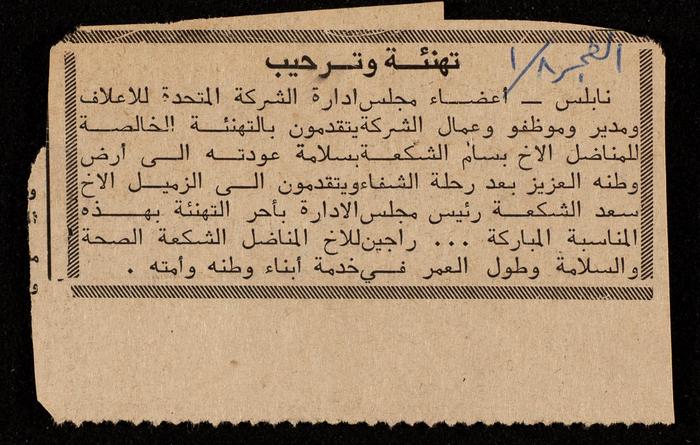 الفجر ١/٨
تهنئــة وتــرحيب
نابلس ــ أعضــاء مجلس ادارة الشركة المتحدة للاعلاف
ومدير وموظفو وعمال الشركة يتقدمون بالتهنئــة الخالصــة
للمناضل الاخ بسام الشكعــة بسلامة عودتــه الــى أرض
وطنه العزيز بعد رحلة الشفاء ويتقدمون الــى الزميــل الاخ
سعد الشكعــة رئيس مجلس الادارة بأحر التهنئة بهــذه
المناسبة المباركة ... راجين للاخ المناضل الشكعة الصحة
والسلامة وطول العمر فــي خدمة أبناء وطنه وأمته .